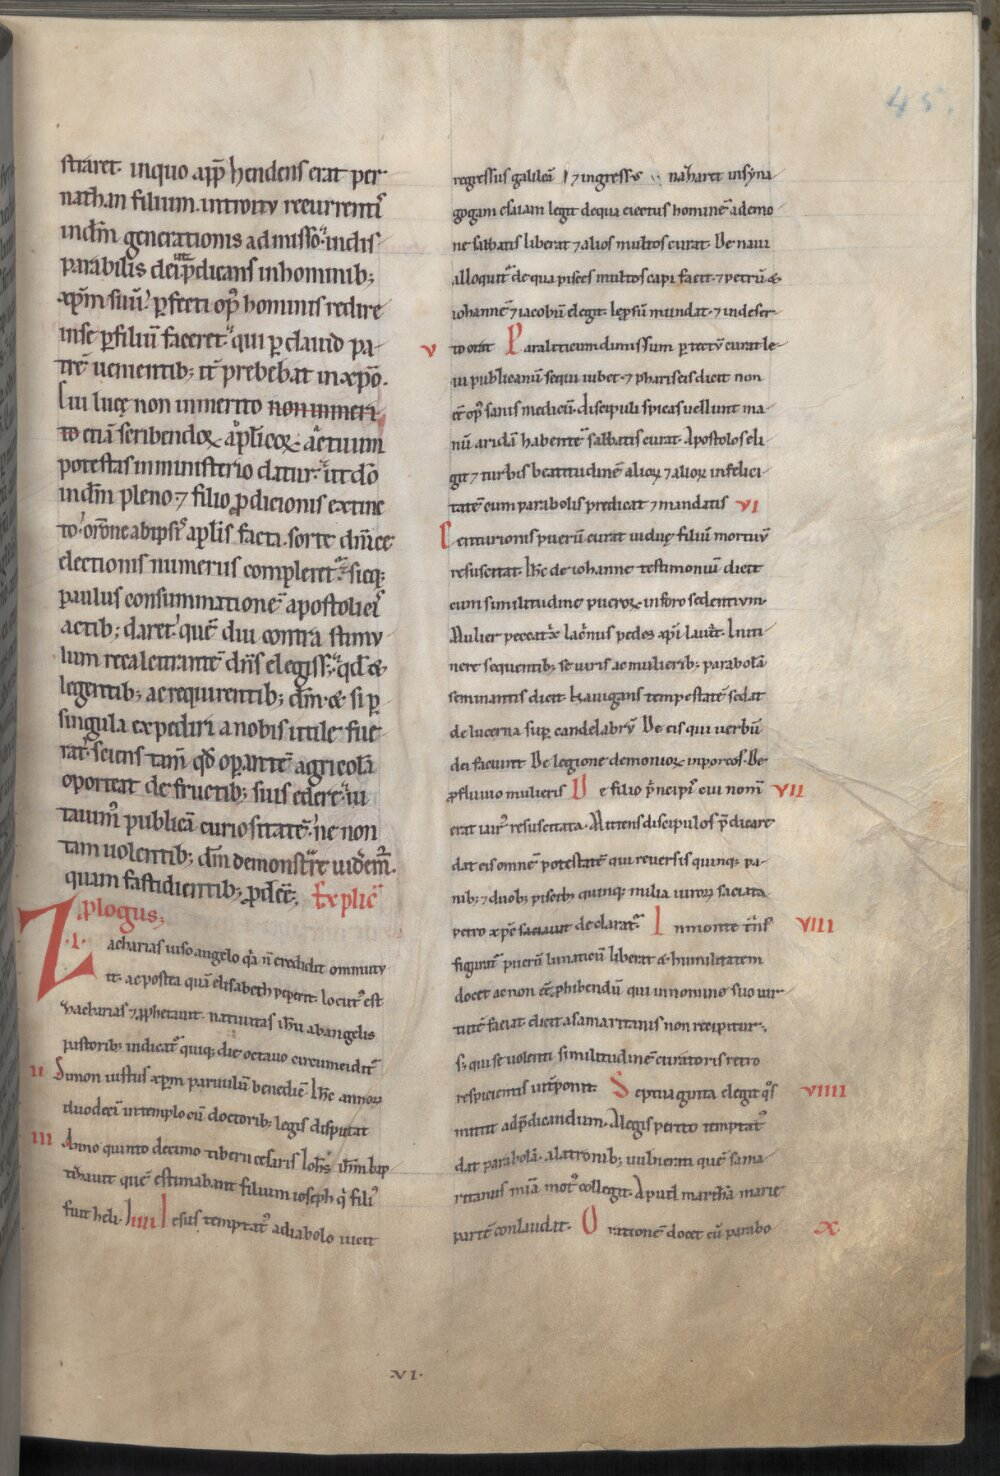 45.
straret. inquo app̄hendens erat per
nathan filium. introitu recurrentis
indm̄ generationis admisso. indis-
parabilis dei ut p̄dicans inhominib;
xp̄m suū. pfecti op' hominis redire
inse pfiliū faceret. qui p dauid pa-
trē uenientib; it̄ prebebat inxpō.
Cui lucę non inmerito non inmeri-
to etiā scribendoꝝ ap̄licoꝝ actuum
potestas inministerio datur. ut dō
indm̄ pleno. ⁊ filio pdicionis extinc
to. orōne abipsis ap̄lis facta. sorte dnīcę
electionis numerus compleret. sicq;
paulus consummationē apostolicis
actib; daret. quē diu contra stimu-
lum recalcitrantē dn̄s elegiss;. qd̄ &
legentib; ac requirentib; dm̄. & si p
singula expediri anobis utile fue-
rat. sciens tam̄ qđ opantē agricolā
oporteat de fructib; suis edere. ui
tauim' publicā curiositatē. ne non
tam uolentib; dm̄ demonstrare uidem̄.
quam fastidientib; pdcē;. Explic̄
plogus;
.I. Zacharias uiso angelo qa n̄ credidit ommutu
it. ac postea quā elisabeth peperit. locut' est
zacharias ⁊ pphetauit. natiuitas ihū abangelis
pastorib; indicat' quiq; die octauo circumcidit'
II Simon iustus xpm paruulū benedic̄. hīc annoꝝ
duodecī intemplo cū doctorib; legis disputat
III Anno quinto decimo tiberii cesaris ioh̄s ihm̄ bap-
tizauit quē estimabant filium ioseph q̄ fili'
fuit heli. IIII Iesus temptat' adiabolo uicit
regressus galileā ⁊ ingress.s nazharet insyna-
gogam esaiam legit dequa eiectus hominē ademo-
ne sabbatis liberat ⁊ alios multos curat. De naui
alloquit' de qua pisces multos capi facit. ⁊ petrū &
iohannē ⁊ iacobū elegit. lepsū mundat. ⁊ indeser-
V to orat Paraliticum dimissum p tectū curat le-
ui publicanū sequi iubet. ⁊ phariseis dicit non
ēē op' sanis medicū. discipuli spicas uellunt ma-
nū aridā habentē sabbatis curat. Apostolos eli-
git ⁊ turbis beatitudinē alioꝝ ⁊ alioꝝ infelici-
tatē cum parabolis predicat ⁊ mandatis VI
Centurionis puerū curat uiduę filiū mortuū
resuscitat. hīc de iohanne testimoniū dicit
cum similitudine pueroꝝ inforo sedentium.
Mulier peccat'x lac'mis pedes xp̄i lauit. Initi-
nere sequentib; se uiris ac mulierib; parabolā
seminantis dicit. Nauigans tempestatē sedat
de lucerna sup candelabrū. De eis qui uerbū
dei faciunt De legione demonioꝝ inporcos. De
pfluuio mulieris De filio p̄ncipis cui nom̄ VII
erat iair' resuscitata. Mittens discipulos p̄dicare
dat eis omnē potestatē qui reuersis quinq; pa-
nib; ⁊ duob; piscib; quinq; milia uiroꝝ saciata
petro xp̄c saciauit declarat'. In monte t̄nsf VIII
figurat' puerū lunaticū liberat & humilitatem
docet ac non ēē phibendū qui innomine suo uir-
tutē faciat dicit asamaritanis non recipitur;.
s; qui se uolenti similitudinē curatoris retro
respicientis inponit. Septuaginta elegit q's VIIII
mittit adp̄dicandum. Alegis perito temptat'
dat parabolā. alatronib; uulnerati quē sama-
ritanus miā mot' collegit. Apud marthā marie
partē conlaudat. Orationē docet cū parabo X
.VI.